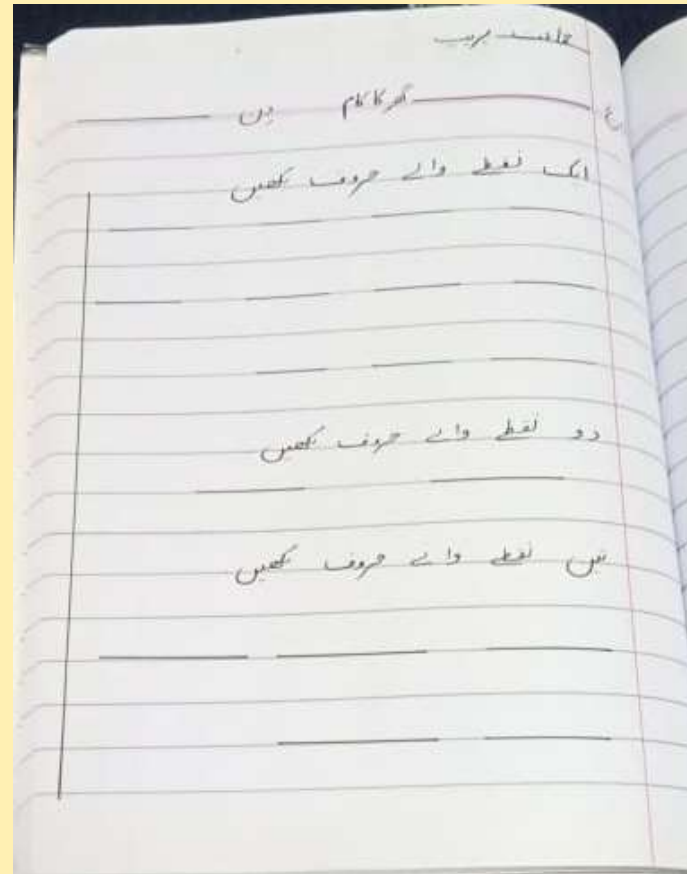 جماعت پریپ
گھر کا کام دن
ایک نقطے والے حروف لکھیں
دو نقطے والے حروف لکھیں
تین نقطے والے حروف لکھیں